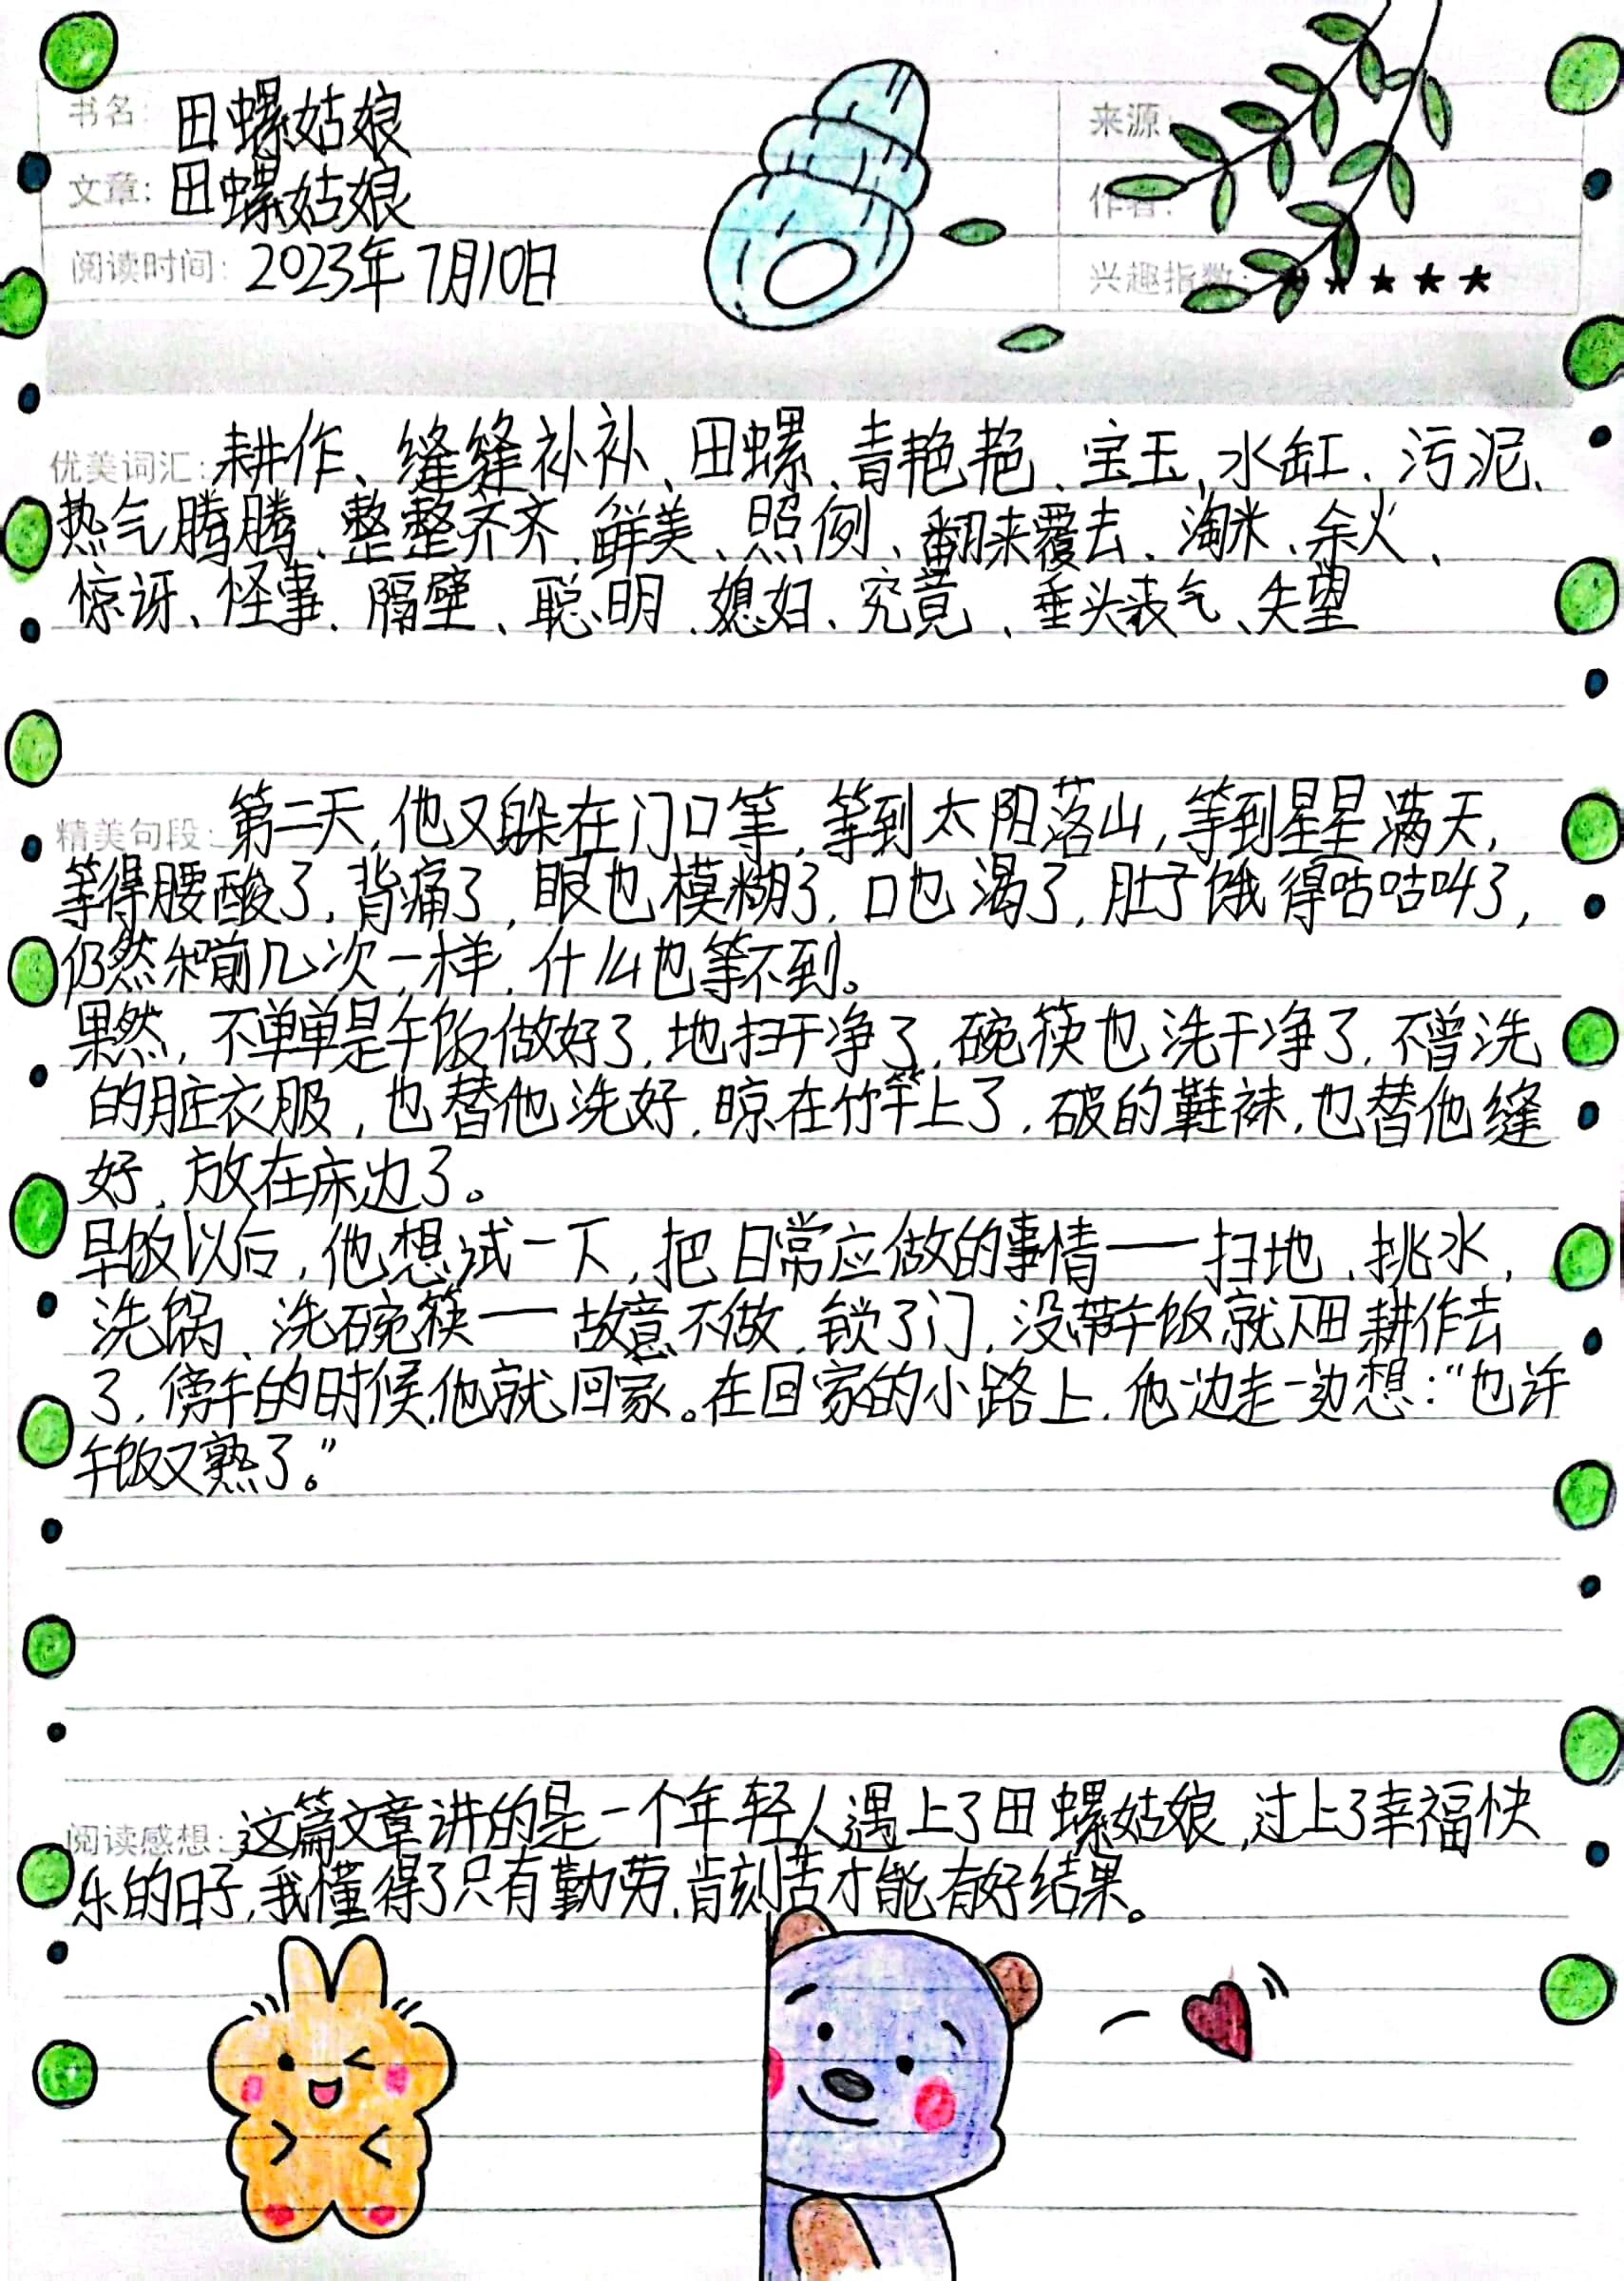 书名: 田螺姑娘
来源:
文章: 田螺姑娘
作者:
阅读时间: 2023年7月10日
兴趣指数: ★★★★★
优美词汇: 耕作、缝缝补补、田螺、青艳艳、宝玉、水缸、污泥、
热气腾腾、整整齐齐、鲜美、照例、翻来覆去、淘米、余火、
惊讶、怪事、隔壁、聪明、媳妇、究竟、垂头丧气、失望
精美句段: 第二天,他又躲在门口等,等到太阳落山,等到星星满天,
等得腰酸了,背痛了,眼也模糊了,口也渴了,肚子饿得咕咕叫了,
仍然和前几次一样,什么也等不到。
果然,不单单是午饭做好了,地扫干净了,碗筷也洗干净了,不曾洗
的脏衣服,也替他洗好,晾在竹竿上了,破的鞋袜,也替他缝
好,放在床边了。
早饭以后,他想试一下,把日常应做的事情——扫地、挑水,
洗锅、洗碗筷——故意不做,锁了门,没带午饭,就下田耕作去
了,傍午的时候,他就回家。在回家的小路上,他一边走一边想:“也许
午饭又熟了。”
阅读感想: 这篇文章讲的是一个年轻人遇上了田螺姑娘,过上了幸福快
乐的日子,我懂得了只有勤劳,肯刻苦才能有好结果。